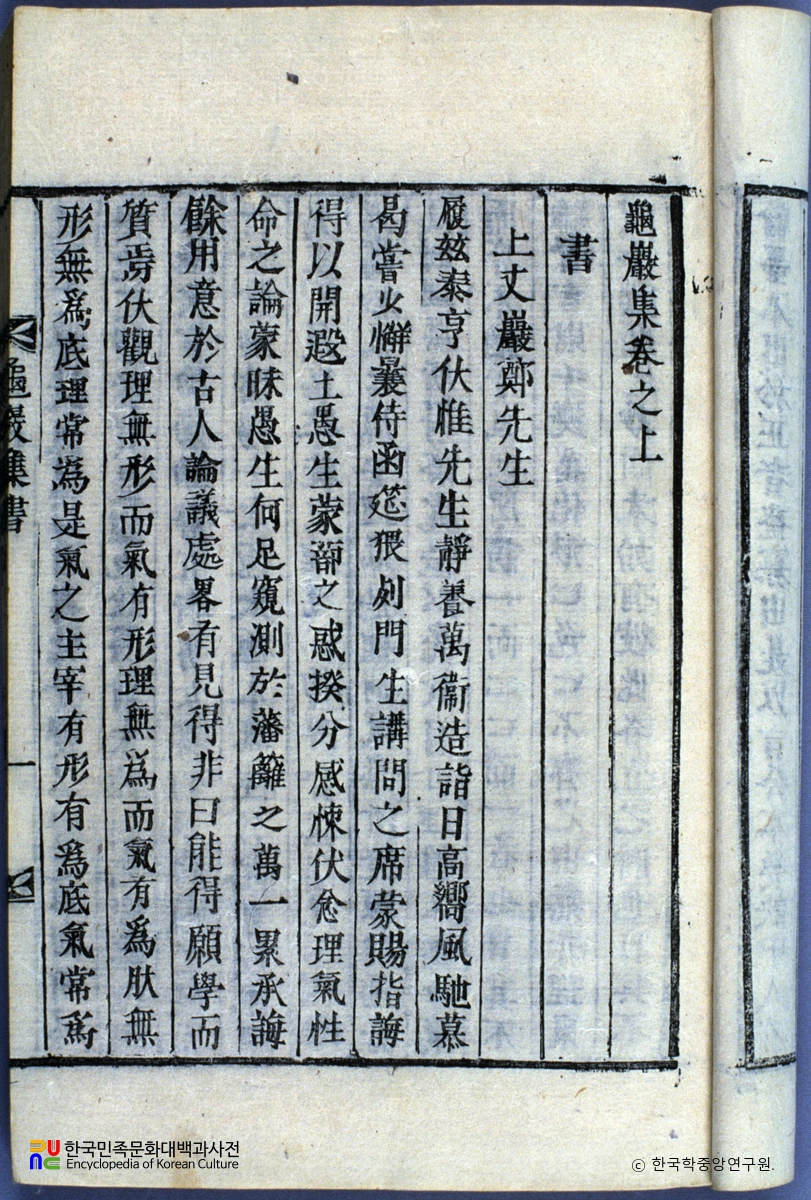 龜巖集卷之上
書
上丈巖鄭先生
履玆泰亨伏惟先生靜養萬衞造詣日高嚮風馳慕
曷嘗少懈曩侍函筵猥列門生講問之席蒙賜指誨
得以開遐土愚生蒙蔀之惑揆分感悚伏念理氣性
命之論蒙昧愚生何足窺測於藩籬之萬一累承誨
餘用意於古人論議處畧有見得非曰能得願學而
質焉伏觀理無形而氣有形理無爲而氣有爲故無
形無爲底理常爲是氣之主宰有形有爲底氣常爲
龜巖集書
一
한국민족문화대백과사전
Encyclopedia of Korean Culture
ⓒ 한국학중앙연구원.